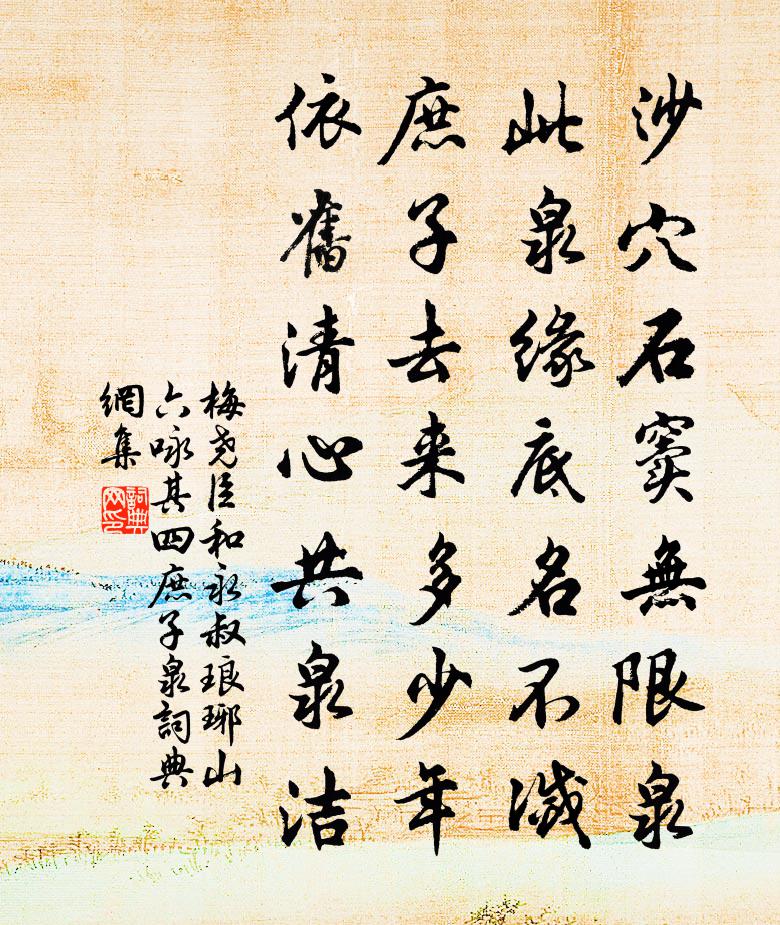 沙穴石竇無限泉
此泉緣底名不滅
庶子去来多少年
依舊清心共泉洁
梅尧臣和永叔琅琊山
六咏其四庶子泉詞典
網集
詞典
网印